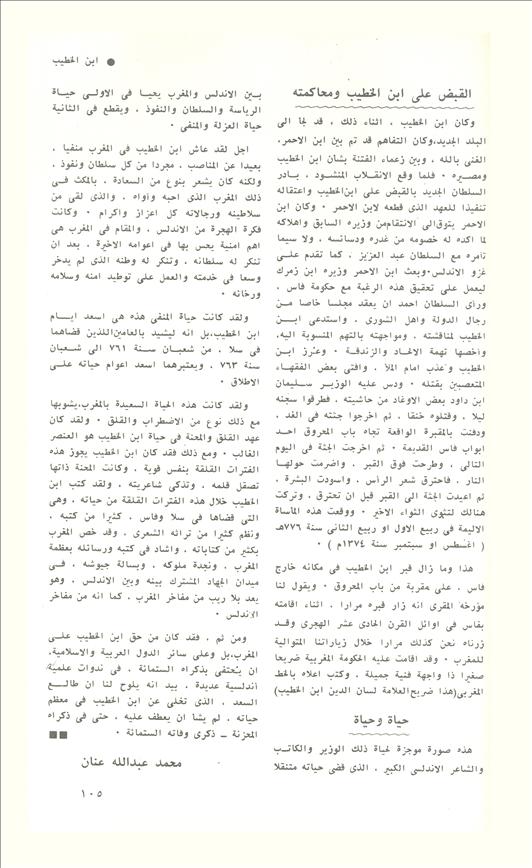 ● ابن الخطيب
القبض على ابن الخطيب ومحاكمته
وكان ابن الخطيب ، اثناء ذلك ، قد لجا الى
البلد الجديد،وكان التفاهم قد تم بين ابن الاحمر،
الغنى بالله ، وبين زعماء الفتنة بشان ابن الخطيب
ومصيره ٠ فلما وقع الانقلاب المنشود ، بادر
السلطان الجديد بالقبض على ابن الخطيب واعتقاله
تنفيذا للعهد الذى قطعه لابن الاحمر ٠ وكان ابن
الاحمر يتوق الى الانتقام من وزيره السابق واهلاكه
لما اكده له خصومه من غدره ودسائسه ، ولا سيما
تامره مع السلطان عبد العزيز ، كما تقدم على
غزو الاندلس٠وبعث ابن الاحمر وزيره ابن زمرك
ليعمل على تحقيق هذه الرغبة مع حكومة فاس ،
وراى السلطان احمد ان يعقد مجلسا خاصا من
رجال الدولة واهل الشورى ، واستدعى ابن
الخطيب لمناقشته ، ومواجهته بالتهم المنسوبة اليه،
واخصها تهمة الالحاد والزندقة ٠ وعزر ابن
الخطيب وعذب امام الملأ ، وافتى بعض الفقهاء
المتعصبين بقتله ٠ ودس عليه الوزير سليمان
ابن داود بعض الاوغاد من حاشيته ، فطرقوا سجنه
ليلا ، وقتلوه خنقا ، ثم اخرجوا جثته فى الغد ،
ودفنت بالمقبرة الواقعة تجاه باب المحروق احد
ابواب فاس القديمة ٠ ثم اخرجت الجثة فى اليوم
التالى ، وطرحت فوق القبر ، واضرمت حولها
النار ، فاحترق شعر الراس ، واسودت البشرة ،
ثم اعيدت الجثة الى القبر قبل ان تحترق ، وتركت
هنالك لتثوى الثواء الاخير ٠ ووقعت هذه الماساة
الاليمة فى ربيع الاول او ربيع الثانى سنة ٧٧٦هـ
( اغسطس او سبتمبر سنة ١٣٧٤م ) ٠
هذا وما زال قبر ابن الخطيب فى مكانه خارج
فاس ، على مقربة من باب المحروق ٠ ويقول لنا
مؤرخه المقرى انه زار قبره مرارا ، اثناء اقامته
بفاس فى اوائل القرن الحادى عشر الهجرى وقد
زرناه نحن كذلك مرارا خلال زياراتنا المتوالية
للمغرب ٠ وقد اقامت عليه الحكومة المغربية ضريحا
صغيرا ذا واجهة فنية جميلة ، وكتب اعلاه بالخط
المغربى(هذا ضريح العلامة لسان الدين ابن الخطيب)
حياة وحياة
هذه صورة موجزة لحياة ذلك الوزير والكاتب
والشاعر الاندلسى الكبير ، الذى قضى حياته متنقلا
بين الاندلس والمغرب يحيا فى الاولى حياة
الرياسة والسلطان والنفوذ ، ويقطع فى الثانية
حياة العزلة والمنفى ٠
اجل لقد عاش ابن الخطيب فى المغرب منفيا ،
بعيدا عن المناصب ، مجردا من كل سلطان ونفوذ ،
ولكنه كان يشعر بنوع من السعادة ، بالمكث فى
ذلك المغرب الذى احبه وآواه ، والذى لقى من
سلاطينه ورجالاته كل اعزاز واكرام ٠ وكانت
فكرة الهجرة من الاندلس ، والمقام فى المغرب هى
اهم امنية يحس بها فى اعوامه الاخيرة ، بعد ان
تنكر له سلطانه ، وتنكر له وطنه الذى لم يدخر
وسعا فى خدمته والعمل على توطيد امنه وسلامه
ورخائه ٠
ولقد كانت حياة المنفى هذه هى اسعد ايام
ابن الخطيب،بل انه ليشيد بالعامين اللذين قضاهما
فى سلا ، من شعبان سنة ٧٦١ الى شعبان
سنة ٧٦٣ ، ويعتبرهما اسعد اعوام حياته على
الاطلاق ٠
ولقد كانت هذه الحياة السعيدة بالمغرب،يشوبها
مع ذلك نوع من الاضطراب والقلق ٠ ولقد كان
عهد القلق والمحنة فى حياة ابن الخطيب هو العنصر
الغالب ٠ ومع ذلك فقد كان ابن الخطيب يجوز هذه
الفترات القلقة بنفس قوية ، وكانت المحنة ذاتها
تصقل قلمه ، وتذكى شاعريته ، ولقد كتب ابن
الخطيب خلال هذه الفترات القلقة من حياته ، وهى
التى قضاها فى سلا وفاس ، كثيرا من كتبه ،
ونظم كثيرا من تراثه الشعرى ، وقد خص المغرب
بكثير من كتاباته ، واشاد فى كتبه ورسائله بعظمة
المغرب ، ونجدة ملوكه ، وبسالة جيوشه ، فى
ميدان الجهاد المشترك بينه وبين الاندلس ، وهو
يعد بلا ريب من مفاخر المغرب ، كما انه من مفاخر
الاندلس ٠
ومن ثم ، فقد كان من حق ابن الخطيب على
المغرب،بل وعلى سائر الدول العربية والاسلامية،
ان يحتفى بذكراه الستمائة ، فى ندوات علمية
اندلسية عديدة ، بيد انه يلوح لنا ان طالع
السعد ، الذى تخلى عن ابن الخطيب فى معظم
حياته ، لم يشا ان يعطف عليه ، حتى فى ذكراه
المحزنة – ذكرى وفاته الستمائة ٠ ■■
محمد عبدالله عنان
١٠٥